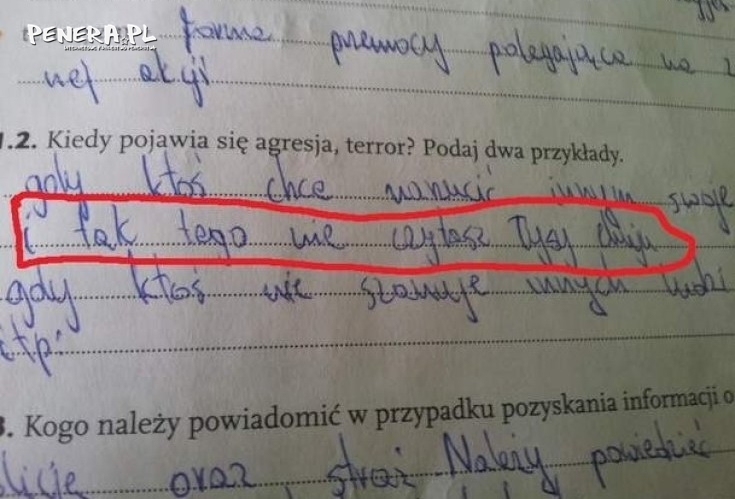 PENERA.PL
forma przemocy polegająca na z
nej akyji
1.2. Kiedy pojawia się agresja, terror? Podaj dwa przykłady.
gdy ktoś chce narucić innym swoje
i tak tego nie czytasz łysy
gdy ktoś nie szanuje innych ludzi
itp.
3. Kogo należy powiadomić w przypadku pozyskania informacji o
olicję oraz straż Należy powiedzieć